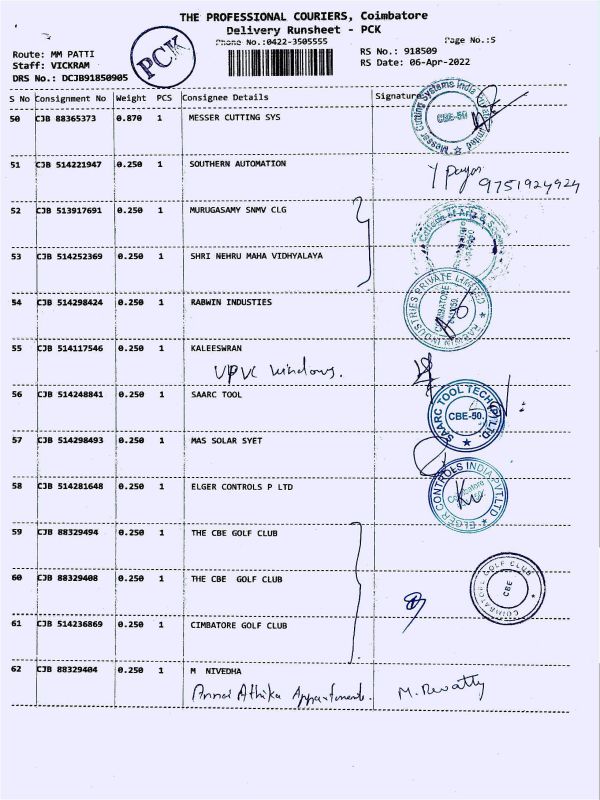 THE PROFESSIONAL COURIERS, Coimbatore
Delivery Runsheet - PCK
Phone No.:0422-3505555
Page No.:5
Route: MM PATTI
Staff: VICKRAM
DRS No.: DCJB91850905
PCK
RS No.: 918509
RS Date: 06-Apr-2022
S No Consignment No Weight PCS Consignee Details Signature
50 CJB 88365373 0.870 1 MESSER CUTTING SYS
Messer Cutting Systems India Private Limited
CBE-50
51 CJB 514221947 0.250 1 SOUTHERN AUTOMATION
9751924924
52 CJB 513917691 0.250 1 MURUGASAMY SNMV CLG
College of Arts & Science
53 CJB 514252369 0.250 1 SHRI NEHRU MAHA VIDHYALAYA
54 CJB 514298424 0.250 1 RABWIN INDUSTIES
RABWIN INDUSTRIES PRIVATE LIMITED
COIMBATORE
55 CJB 514117546 0.250 1 KALEESWRAN
UPVC windows.
56 CJB 514248841 0.250 1 SAARC TOOL
SAARC TOOL TECH (P) LTD.
CBE-50.
57 CJB 514298493 0.250 1 MAS SOLAR SYET
58 CJB 514281648 0.250 1 ELGER CONTROLS P LTD
ELGER CONTROLS INDIA PVT.LTD
Coimbatore
59 CJB 88329494 0.250 1 THE CBE GOLF CLUB
60 CJB 88329408 0.250 1 THE CBE GOLF CLUB
COIMBATORE GOLF CLUB
CBE
61 CJB 514236869 0.250 1 CIMBATORE GOLF CLUB
62 CJB 88329404 0.250 1 M NIVEDHA
Annai Athika Appartments. M. Revathy